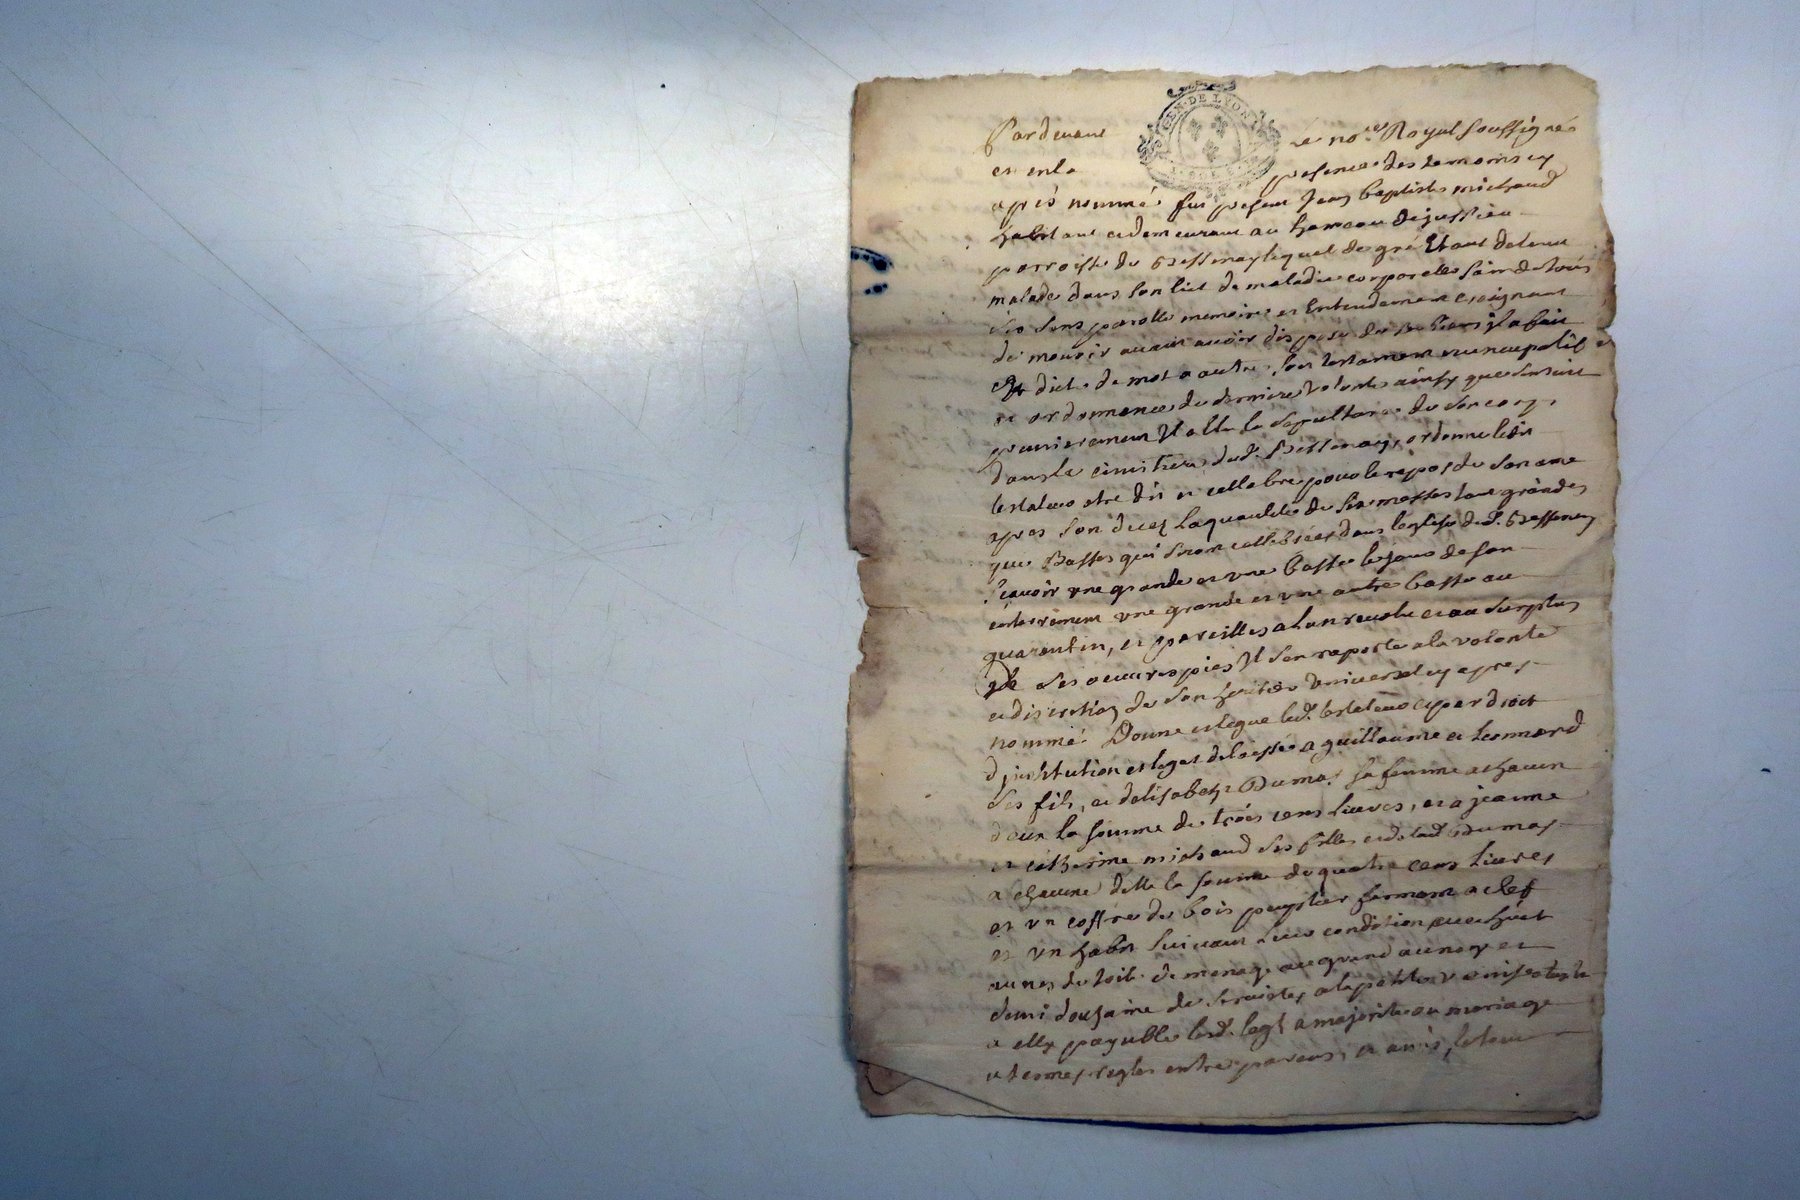 GEN. DE LYON
Pardevant le no.re Royal soussigné
et en la presence des temoins cy
après nommé fut present Jean baptiste michaud
habitant et demeurant au hameau de jussieu
parroisse de Bessenay lequel de gré Etant detenu
malade dans son lict de maladie corporelle sain de tous
ses sens parolle memoire et Entendement craignant
de mourir avant avoir disposé de ses biens il a fait
et dicté de mot a autre son testament nuncupatif
et ordonnance de derniere volonté ainsy que sensuit
premierement Il elle la sepulture de son corps
dans le cimitiere dud. Bessenay, ordonne ledit
testateur etre dit et cellebré pour le repos de son ame
apres son decez la quantité de six messes tant grandes
que Basses qui seront cellebrées dans leglise dud. Bessenay
scavoir une grande et une basse le jour de son
enterrement une grande et une autre basse au
quarantin, et pareilles a lan revolu et au surplus
de ses oeuvres pies Il sen raporte a la volonté
et discretion de son heritier universel cy apres
nommé Donne et legue led. testateur et par droit
dinstitution et legat delaissé a guillaume et Leonnard
ses fils, et delisabeth Dumas sa femme a chacun
deux la somme de trois cens livres, et a jeanne
et catherine michaud ses filles et de lad. Dumas
a chacune delle la somme de quatre cens livres
et un coffre de bois peuplier fermant a clef
et un habit suivant leur condition, avec huit
aunes de toile de menage au grand aunage et
demi douzaine de serviettes a la petite venise
a elles payable lesd. legs a majorité ou mariage
a termes regles entre parens et amis, le tout